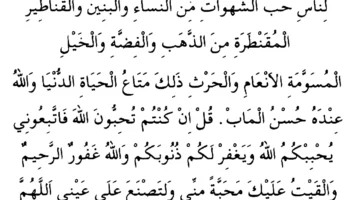 لِنَّاسِ حُبُّ الشَّهَوَاتِ مِنَ النِّسَاءِ وَالْبَنِينَ وَالْقَنَاطِيرِ
الْمُقَنْطَرَةِ مِنَ الذَّهَبِ وَالْفِضَّةِ وَالْخَيْلِ
الْمُسَوَّمَةِ الْأَنْعَامِ وَالْحَرْثِ ذَلِكَ مَتَاعُ الْحَيَاةِ الدُّنْيَا وَاللهُ
عِنْدَهُ حُسْنُ الْمَابْ. قُلْ اِنْ كُنْتُمْ تُحِبُّونَ اللهَ فَاتَّبِعُونِي
يُحْبِبْكُمُ اللهُ وَيَغْفِرْ لَكُمْ ذُنُوبَكُمْ وَاللهُ غَفُورٌ الرَّحِيمٌ
وَالْقَيْتُ عَلَيْكَ مَحَبَّةً مِنِّي وَلِتَصْنَعَ عَلَى عَيْنِي اَللَّهُمَّ